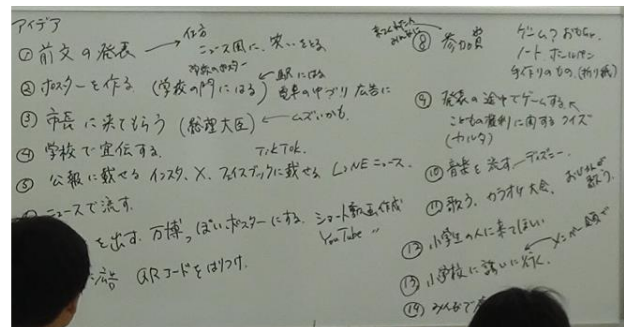 アイデア
① 前文の発表 → 仕方 ニュース風に、笑いをとる
② ポスターを作る (学校の門にはる) ← 駅にはる 電車の中づり広告に
③ 市長に来てもらう (総理大臣) ← ムズいかも。
④ 学校で宣伝する。 TikTok.
⑤ 公報に載せる インスタ、X、フェイスブックに載せる LINEニュース。
ニュースで流す。
を出す。万博っぽいポスターにする。ショート動画作成
YouTube 〃
QRコードをはりつけ。
⑧ 参加賞
ゲーム? おもちゃ。
ノート ボールペン
手作りのもの。(折り紙)
⑨ 発表の途中でゲームする。
こどもの権利に関するクイズ
(カルタ)
⑩ 音楽を流す ディズニー。
⑪ 歌う、カラオケ大会、
歌う。
⑫ 小学生の人に来てほしい
⑬ 小学校に誘いに行く。
⑭ みんなで